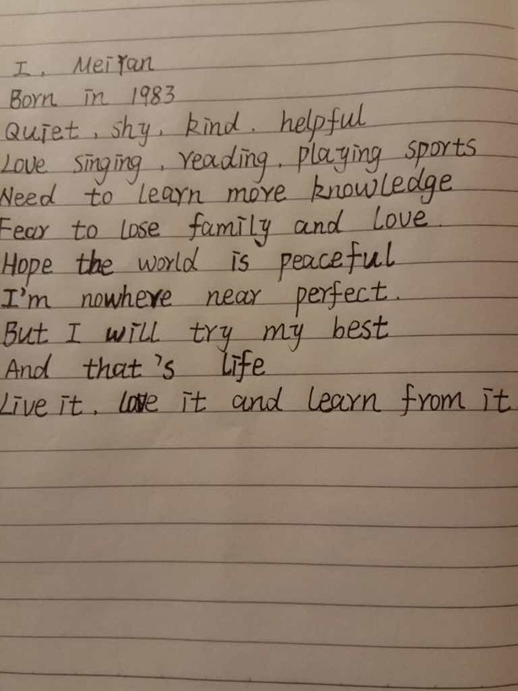 I, MeiYan
Born in 1983
Quiet, shy, kind, helpful
Love singing, reading, playing sports
Need to learn more knowledge
Fear to lose family and love.
Hope the world is peaceful
I'm nowhere near perfect.
But I will try my best
And that's life
Live it, love it and learn from it